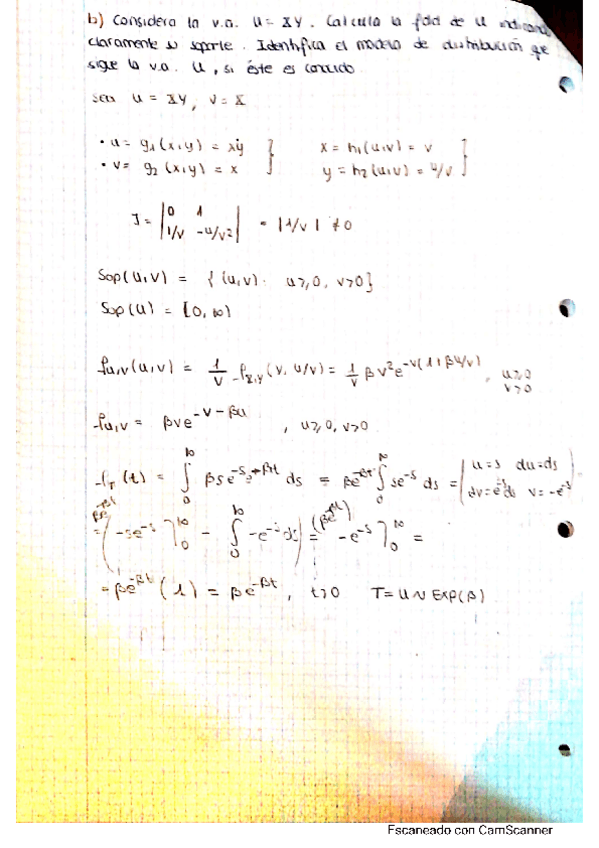 b) Considera la v.a. U = XY. Calcula la fdd de U indicando
claramente su soporte. Identifica el modelo de distribución que
sigue la v.a. U, si éste es conocido.
sea U = XY, V = X
• u = g1(x,y) = xy } x = h1(u,v) = v }
• v = g2(x,y) = x } y = h2(u,v) = u/v }
J = |0 1 / 1/v -u/v²| = |1/v| ≠ 0
Sop(U,V) = {(u,v): u≥0, v>0}
Sop(U) = [0,∞)
fu,v(u,v) = 1/v fX,Y(v, u/v) = 1/v βv²e^-v(1+βu/v), u≥0 v>0
fu,v = βve^-v-βu, u≥0, v>0
fT(t) = ∫0^∞ βse^-s-βt ds = βe^-βt ∫0^∞ se^-s ds = (u=s du=ds / dv=e^-s ds v=-e^-s)
= βe^-βt (-se^-s]0^∞ - ∫0^∞ -e^-s ds) = (βe^-βt) -e^-s]0^∞ =
= βe^-βt (1) = βe^-βt, t>0 T=U~EXP(β)
Escaneado con CamScanner